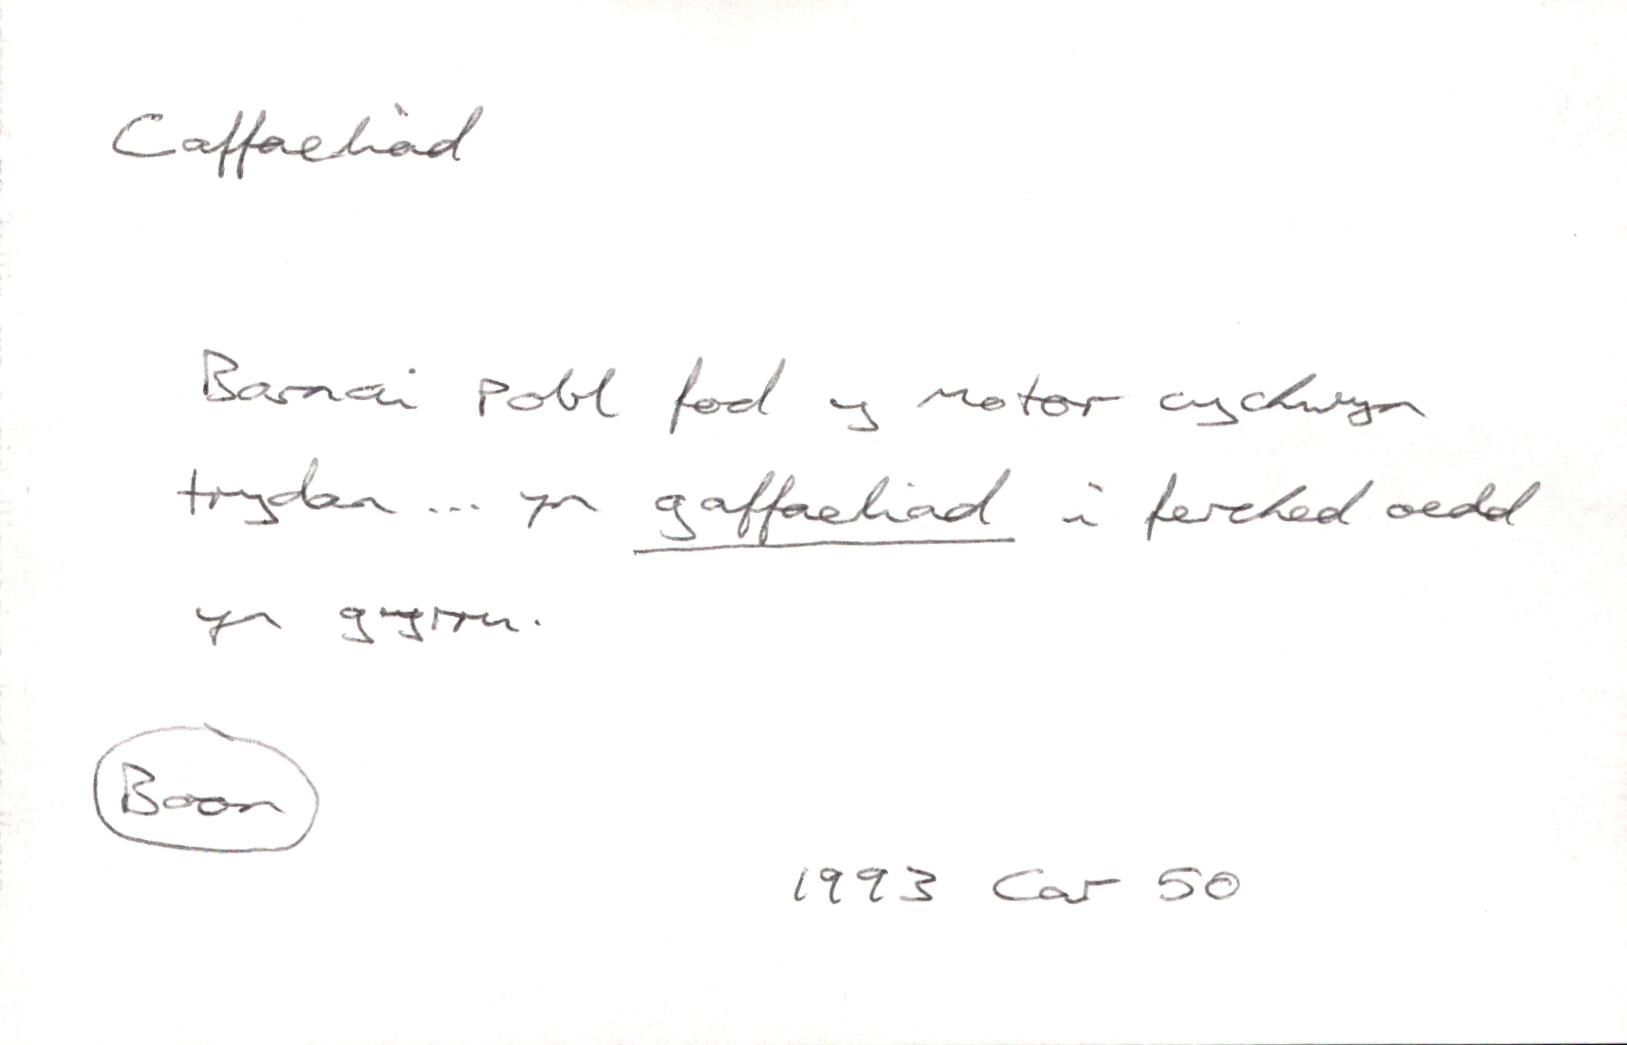 Caffaeliad
Barnai pobl fod y motor cychwyn
trydan ... yn gaffaeliad i ferched oedd
yn gyrru.
Boon
1993 Car 50